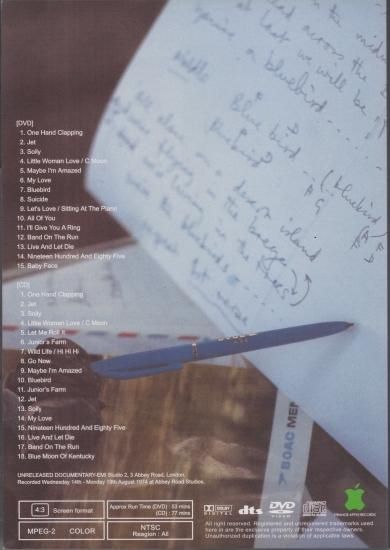 in the
lead across the
at last we will be
you're a bluebird
Middle
Blue bird
Bluebird
(bluebird)
A
G
desert island
the breeze
(trees)
[DVD]
1. One Hand Clapping
2. Jet
3. Soily
4. Little Woman Love / C Moon
5. Maybe I'm Amazed
6. My Love
7. Bluebird
8. Suicide
9. Let's Love / Sitting At The Piano
10. All Of You
11. I'll Give You A Ring
12. Band On The Run
13. Live And Let Die
14. Nineteen Hundred And Eighty Five
15. Baby Face
[CD]
1. One Hand Clapping
2. Jet
3. Soily
4. Little Woman Love / C Moon
5. Let Me Roll It
6. Junior's Farm
7. Wild Life / Hi Hi Hi
8. Go Now
9. Maybe I'm Amazed
10. Bluebird
11. Junior's Farm
12. Jet
13. Soily
14. My Love
15. Nineteen Hundred And Eighty Five
16. Live And Let Die
17. Band On The Run
18. Blue Moon Of Kentucky
BOAC MEN
UNRELEASED DOCUMENTARY-EMI Studio 2, 3 Abbey Road, London.
Recorded Wednesday 14th - Monday 19th August 1974 at Abbey Road Studios.
4:3 Screen format
Approx Run Time (DVD) : 53 mins
(CD) : 77 mins
MPEG-2 COLOR
NTSC
Reagion : All
DOLBY
DIGITAL
dts
DVD
VIDEO
COMPACT
disc
STRANGE APPLE RECORDS
All right reserved. Registered and unregistered trademarks used
here in are the exclusive property of their respective owners.
Unauthorized duplication is a violation of applicable laws.